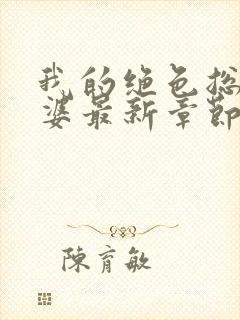 我的绝色总
婆最新章節
陳育敏